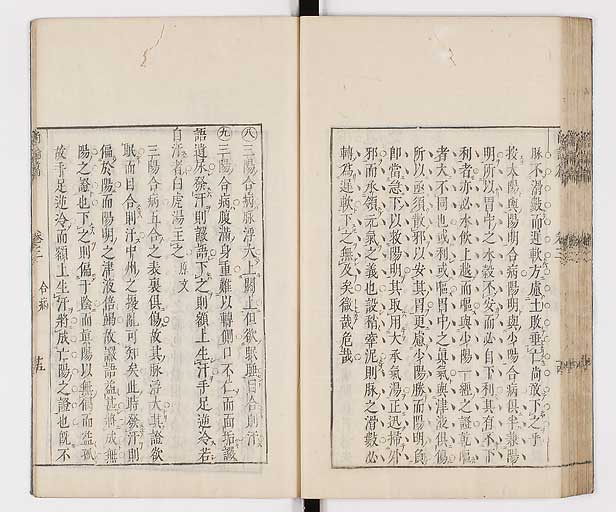 脉不滑數而遲軟方慮土敗垂亡尚敢下之乎
按太陽與陽明合病陽明與少陽合病俱半兼陽
明所以胃中之水穀不安而必自下利其有不下
利者亦必水飲上越而嘔與少陽一經之證乾嘔
者大不同也或利或嘔胃中之眞氣與津液俱傷
所以亟須散邪以安其胃更慮少陽勝而陽明負
即當急下以救陽明其取用大承氣湯正迅掃外
邪而承領元氣之義也設稽牽泥則脉之滑數必
轉爲遲軟下之無及矣微哉危哉
㊇三陽合病脉浮大上關上但欲眠睡目合則汗
㊈三陽合病腹滿身重難以轉側口不仁而面垢譫
語遺尿發汗則譫語下之則額上生汗手足逆冷若
自汗者白虎湯主之 原文
三陽合病五合之表裏俱傷故其脉浮大其證欲
眠而目合則汗中州之擾亂可知矣此時發汗則
偏於陽而陽明之津液倍竭故譫語益甚將成無
陽之證也下之則偏于陰而眞陽以無偶而益孤
故手足逆冷而額上生汗將成亡陽之證也既不
合病